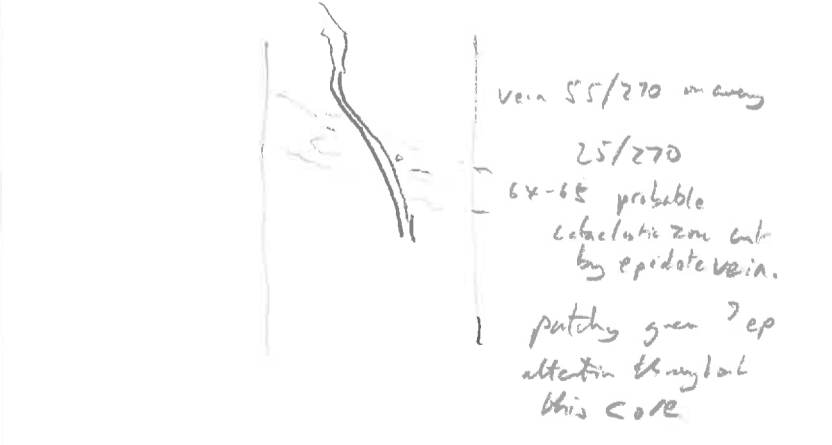 vein 55/270 on average
25/270
64-65 probable
cataclastic zone cut
by epidote vein.
patchy green ?ep
alteration throughout
this core